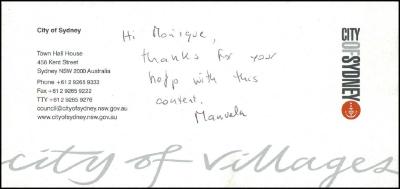 City of Sydney
Town Hall House
456 Kent Street
Sydney NSW 2000 Australia
Phone +61 2 9265 9333
Fax +61 2 9265 9222
TTY +61 2 9265 9276
council@cityofsydney.nsw.gov.au
www.cityofsydney.nsw.gov.au
Hi Monique,
thanks for your
help with this
content.
Manuela
CITY OF SYDNEY
city of villages